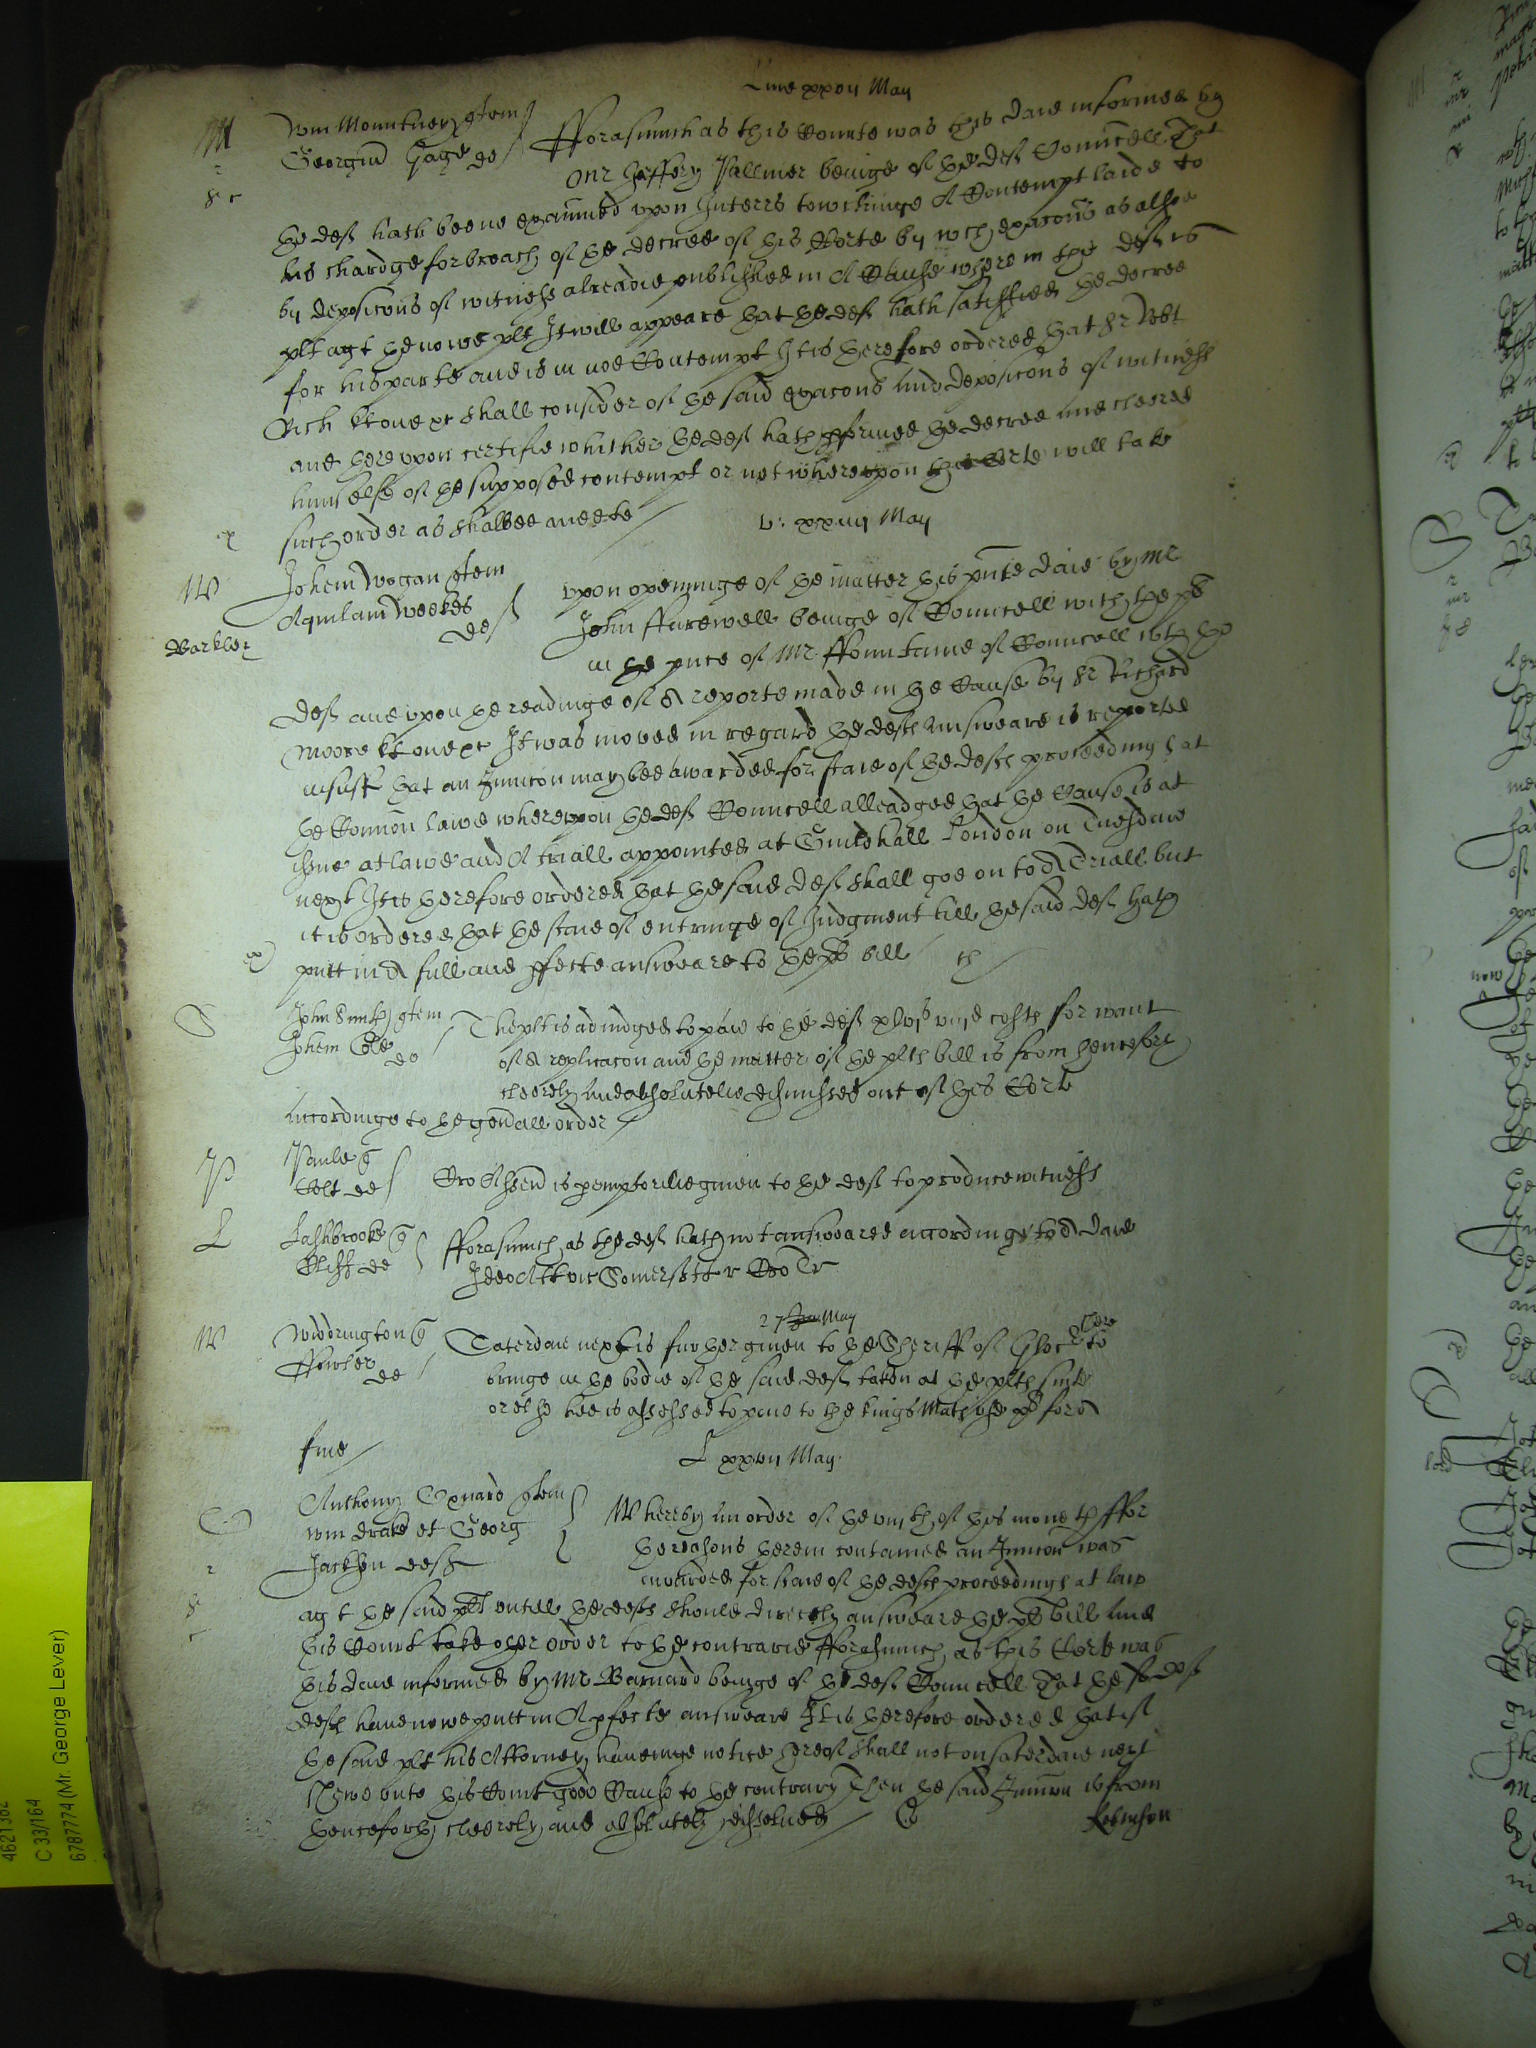 Lune xxvii May
M
Wm Mountney quem
Georgiu Gage de
fforasmuch as this Courte was this daie informed by
Mr Jeffery Pallmer beinge of the def Councell That
the def hath beene examined upon Interrs towchinge A Contempt laide to
his chardge for breach of the decree of this Corte by wch exacons as alsoe
by deposicons of witness alreadie published in A Cause wherein the def is
plt agt the nowe plt It will appeare that the def hath satisfied the decree
for his parte and is in noe Contempt It is therefore ordered that Sr Robt
Rich kt one &c shall consider of the said exacons and deposicons of witness
and thereupon certifie whither the def hath pformed the decree and cleered
himselfe of the supposed contempt or not whereupon this Corte will take
such order as shalbee meete
v: xxviii May
W
Johem Wogan quem
Aquilam Weekes
def
Barkley
upon openinge of the matter this pnte daie by Mr
John ffarewell beinge of Councell with the plt
in the pnce of Mr ffountaine of Councell wth the
def and upon the readinge of A reporte made in the Cause by Sr Richard
Moore kt one &c It was moved in regard the defts answeare is reported
insuff that an Iniuncon may bee awarded for staie of the defts proceedings at
the Common lawe whereupon the def Councell alleadged that the Cause is at
issue at lawe and A triall appointed at Guildhall London on Tuesdaie
next It is therefore ordered that the said def shall goe on to A Triall but
it is ordered that the staie of entringe of Judgment till the said def hath
putt in A full and pfecte answeare to the plts bill
S
John Smith quem
Johem Cole
de
The plt is adiudged to paie to the def xlvis viijd costs for want
of A replicacon and the matter of the plts bill is from henceforth
cleerely and absolutelie dismissed out of this Corte
accordinge to the genall order
P
Paule q
Colt de
Cro Assend is peremptorilie given to the def to produce witness
L
Lashbrooke q
Cliff de
fforasmuch as the def hath not answeared accordinge to A daie
Ideo Att vic Somersett r Cro Tr
W
Widdrington q
ffowler
de
27 May
Saterdaie next is further given to the Sheriff of Glouc to
bringe in the bodie of the said def taken at the plts suite
or else hee is assessed to paie to the kings Matie for A
fine
L xxvii May
Anthony quem
Wm Drake et Georg
Jackson defts
Whereby an order of the viijth of this moneth ffor
the reasons therein contained an Iniuncon was
awarded for staie of the defts proceedings at law
agt the said plt untill the defts should directly answeare the plts bill and
this Court take other order to the contrarie fforasmuch as this Corte was
this daie informed by Mr Barnard beinge of the def Councell That the sd def
defts have nowe putt in A pfecte answeare It is therefore ordered that if
the said plt his Attorney haveinge notice thereof shall not on saterdaie next
shewe unto this Court good Cause to the contrary Then the said Iniuncon is from
henceforth cleerely and absolutely dissolved
Robinson
4621382
C 33/164
6787774 (Mr. George Lever)